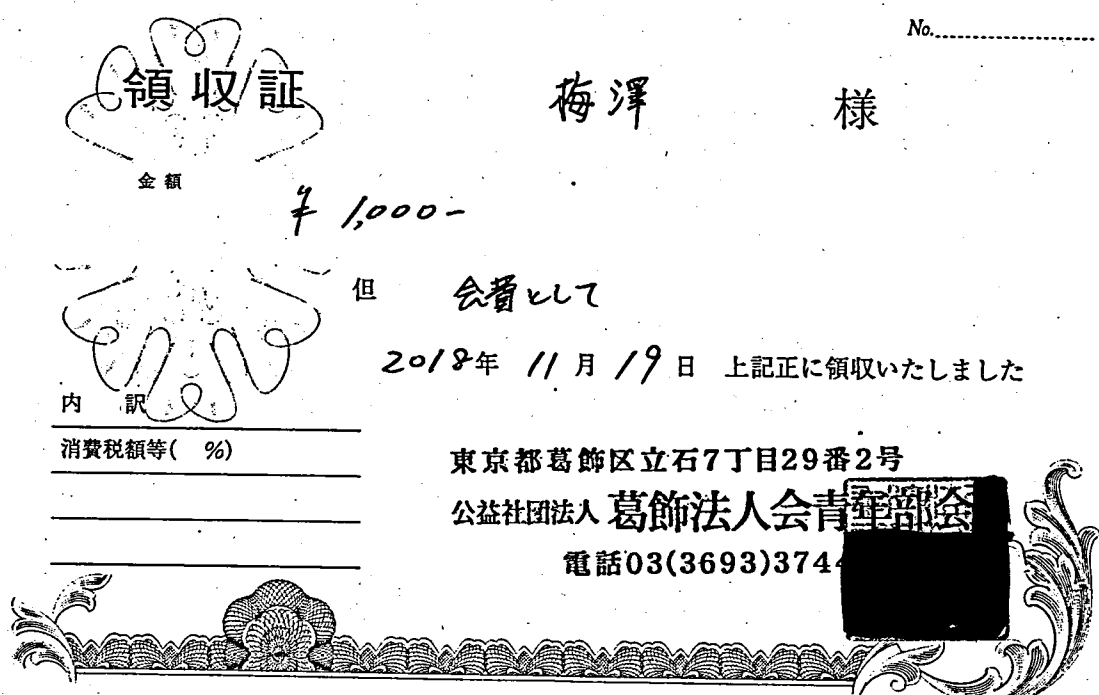 No.
領収証
梅澤 様
金額
¥ 1,000-
但 会費として
2018年 11月 19日 上記正に領収いたしました
内 訳
消費税額等( %)
東京都葛飾区立石7丁目29番2号
公益社団法人 葛飾法人会青年部会
電話03(3693)3744